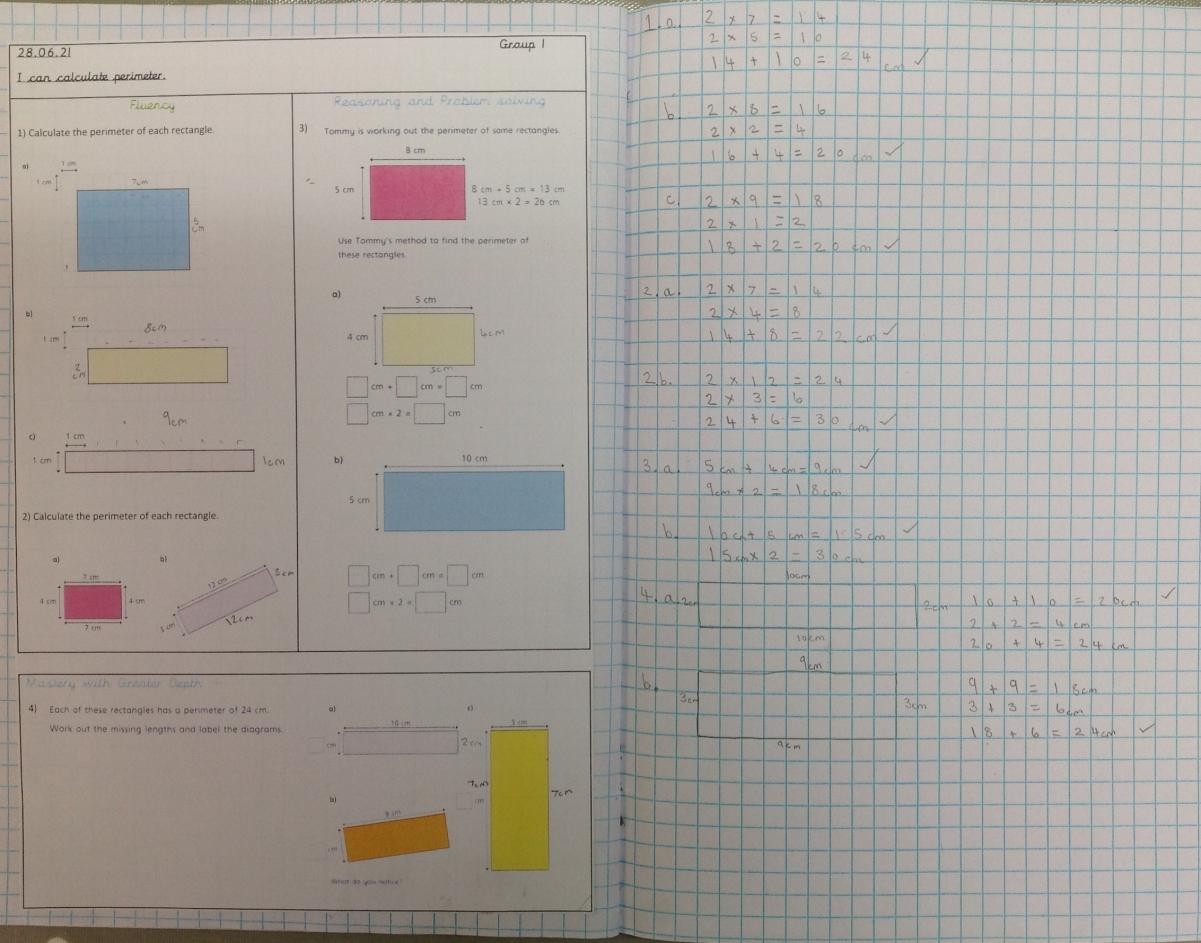 28.06.21
Group 1
I can calculate perimeter.
Fluency
1) Calculate the perimeter of each rectangle.
a)
1 cm
1 cm
7cm
5
cm
b)
1 cm
8cm
1 cm
2
cm
9cm
c)
1 cm
1 cm
1cm
2) Calculate the perimeter of each rectangle.
a)
7 cm
4 cm
4 cm
7 cm
b)
12 cm
3cm
3 cm
12cm
Reasoning and Problem solving
3) Tommy is working out the perimeter of some rectangles.
8 cm
5 cm
8 cm + 5 cm = 13 cm
13 cm × 2 = 26 cm
Use Tommy's method to find the perimeter of
these rectangles.
a)
5 cm
4 cm
4cm
5cm
cm + cm = cm
cm × 2 = cm
b)
10 cm
5 cm
cm + cm = cm
cm × 2 = cm
Mastery with Greater Depth
4) Each of these rectangles has a perimeter of 24 cm.
Work out the missing lengths and label the diagrams.
a)
10 cm
cm
2cm
b)
9 cm
cm
c)
5 cm
7cm
cm
7cm
What do you notice?
1. a. 2 × 7 = 14
2 × 5 = 10
14 + 10 = 24 cm ✓
b. 2 × 8 = 16
2 × 2 = 4
16 + 4 = 20 cm ✓
c. 2 × 9 = 18
2 × 1 = 2
18 + 2 = 20 cm ✓
2. a. 2 × 7 = 14
2 × 4 = 8
14 + 8 = 22 cm ✓
2. b. 2 × 12 = 24
2 × 3 = 6
24 + 6 = 30 cm ✓
3. a. 5 cm + 4cm = 9cm ✓
9cm × 2 = 18cm
b. 10cm + 5 cm = 15cm ✓
15cm × 2 = 30cm
4. a. 2cm 10cm 2cm 10 + 10 = 20cm ✓
2 + 2 = 4 cm
10cm 20 + 4 = 24 cm
b. 3cm 9cm 3cm 9 + 9 = 18cm
3 + 3 = 6cm
9cm 18 + 6 = 24cm ✓